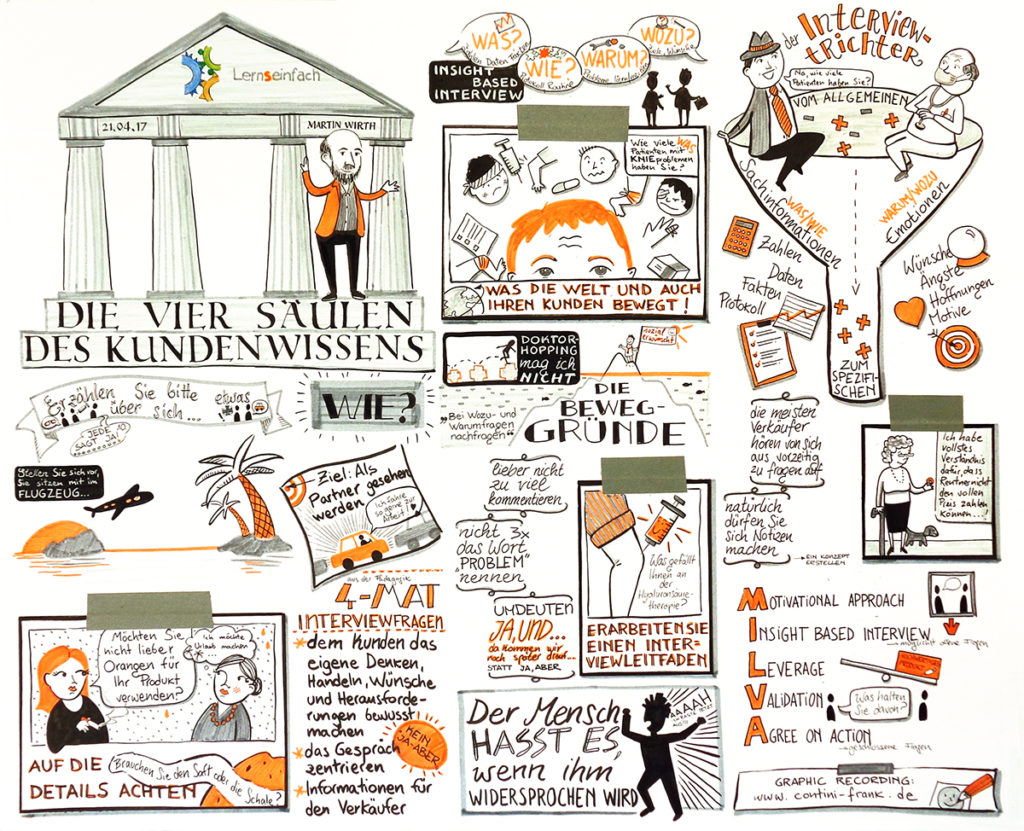 Lernseinfach
21.04.17
MARTIN WIRTH
DIE VIER SÄULEN
DES KUNDENWISSENS
WAS?
Zahlen Daten Fakten
WIE?
Protokoll Routine
WARUM?
Probleme
WOZU?
Ziele, Wünsche
INSIGHT
BASED
INTERVIEW
Wie viele WAS
Patienten mit
KNIEproblemen
haben Sie?
WAS DIE WELT UND AUCH
IHREN KUNDEN BEWEGT!
der
INTERVIEW-
TRICHTER
Na, wie viele
Patienten haben Sie?
VOM ALLGEMEINEN
Sachinformationen
WAS/WIE
WARUM/WOZU
Emotionen
Zahlen
Daten
Fakten
Protokoll
Wünsche
Ängste
Hoffnungen
Motive
ZUM
SPEZIFI-
SCHEN
Erzählen Sie bitte etwas
über sich...
JEDER
SAGT JA!
WIE?
Stellen Sie sich vor,
Sie sitzen mit im
FLUGZEUG...
Ziel: Als
Partner gesehen
werden
Ich fahre
so gerne zur
Arbeit
DOKTOR-
HOPPING
mag ich
NICHT
sozial
erwünscht
DIE
BEWEG-
GRÜNDE
"Bei Wozu- und
Warumfragen
nachfragen"
lieber nicht
zu viel
kommentieren
nicht 3x
das Wort
"PROBLEM"
nennen
UMDEUTEN
JA, UND...
da kommen wir
noch später drauf...
STATT JA, ABER
Was gefällt
Ihnen an
der
Hyaluronsäure-
therapie?
ERARBEITEN SIE
EINEN INTER-
VIEWLEITFADEN
die meisten
Verkäufer
hören von sich
aus vorzeitig
zu fragen auf
natürlich
dürfen Sie
sich Notizen
machen
EIN KONZEPT
ERSTELLEN
Ich habe
vollstes
Verständnis
dafür, dass
Rentner nicht
den vollen
Preis zahlen
können...!
Möchten Sie
nicht lieber
Orangen für
Ihr Produkt
verwenden?
Ich möchte
Urlaub machen
AUF DIE
DETAILS ACHTEN
Brauchen Sie den Saft oder die Schale?
aus der Pädagogik
4-MAT
INTERVIEWFRAGEN
*dem Kunden das
eigene Denken,
Handeln, Wünsche
und Herausforde-
rungen bewusst
machen
*das Gespräch
zentrieren
*Informationen für
den Verkäufer
KEIN
JA-ABER
Der Mensch
HASST ES,
wenn ihm
WIDERSPROCHEN WIRD
AAAAH
MOTIVATIONAL APPROACH
INSIGHT BASED INTERVIEW
möglichst offene Fragen
LEVERAGE
HOCHWERTIGES
PRODUKT
VALIDATION
Was halten
Sie davon?
AGREE ON ACTION
geschlossene Fragen
GRAPHIC RECORDING:
www.contini-frank.de